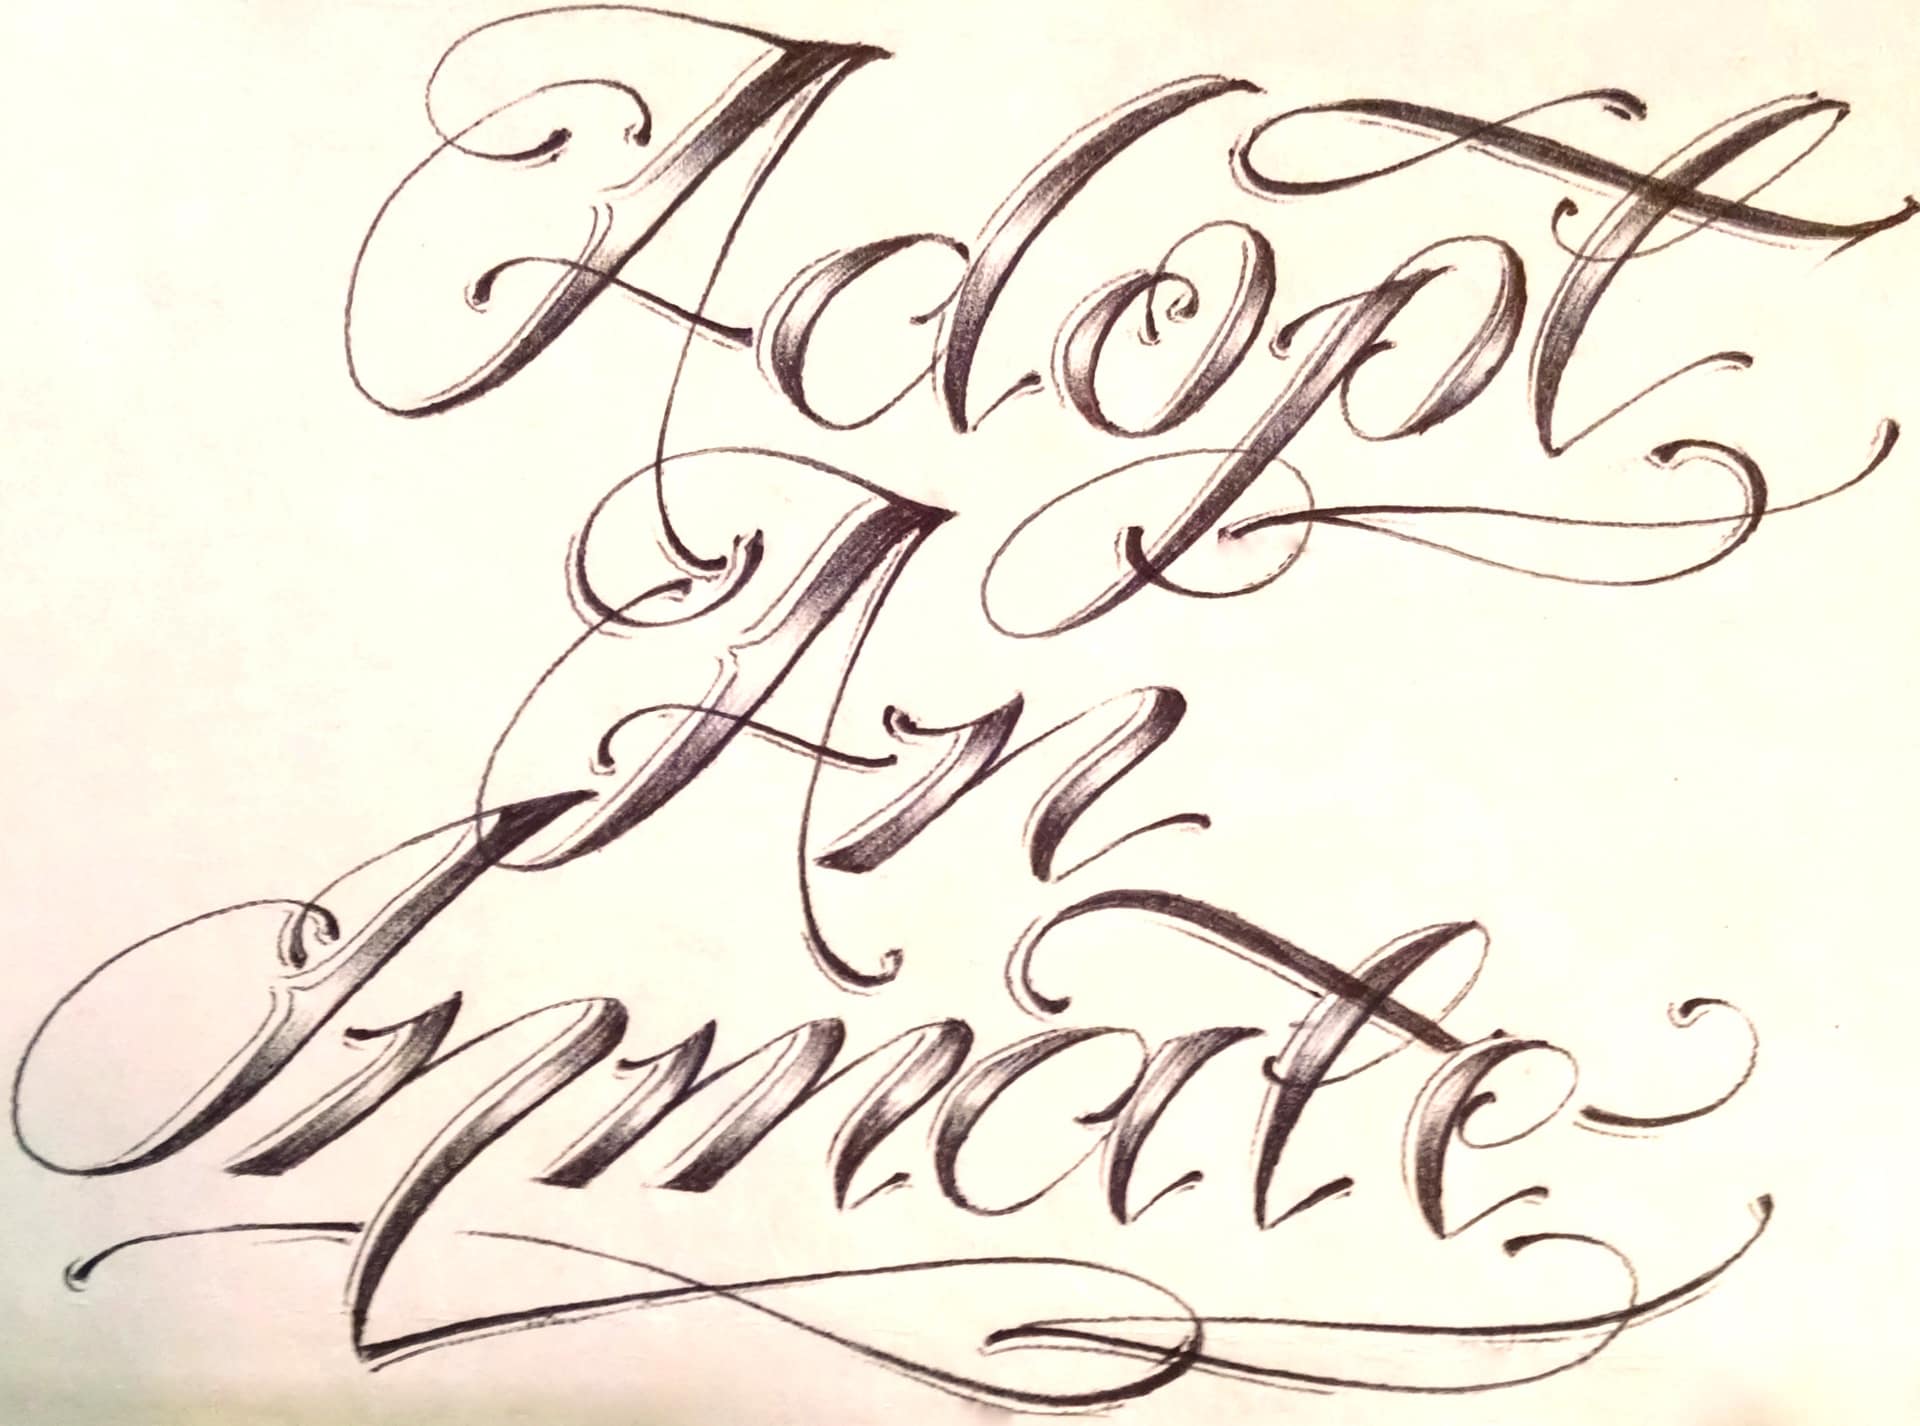 Adopt
An
Inmate